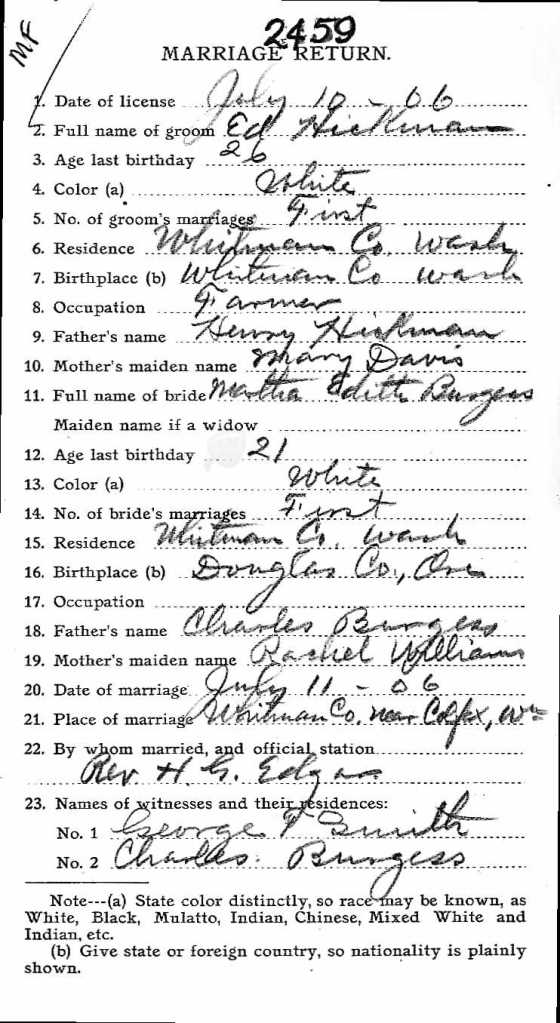 MF
2459
MARRIAGE RETURN.
1. Date of license July 10 - 06
2. Full name of groom Ed Hickman
3. Age last birthday 26
4. Color (a) White
5. No. of groom's marriages First
6. Residence Whitman Co. Wash
7. Birthplace (b) Whitman Co wash
8. Occupation Farmer
9. Father's name Henry Hickman
10. Mother's maiden name Mary Davis
11. Full name of bride Martha Edith Burgess
Maiden name if a widow
12. Age last birthday 21
13. Color (a) White
14. No. of bride's marriages First
15. Residence Whitman Co, wash
16. Birthplace (b) Douglas Co., Ore
17. Occupation
18. Father's name Charles Burgess
19. Mother's maiden name Rachel Williams
20. Date of marriage July 11 - 06
21. Place of marriage Whitman Co. near Colfax, Wn
22. By whom married, and official station
Rev H. G. Edgar
23. Names of witnesses and their residences:
No. 1 George F Smith
No. 2 Charles Burgess
Note---(a) State color distinctly, so race may be known, as
White, Black, Mulatto, Indian, Chinese, Mixed White and
Indian, etc.
(b) Give state or foreign country, so nationality is plainly
shown.